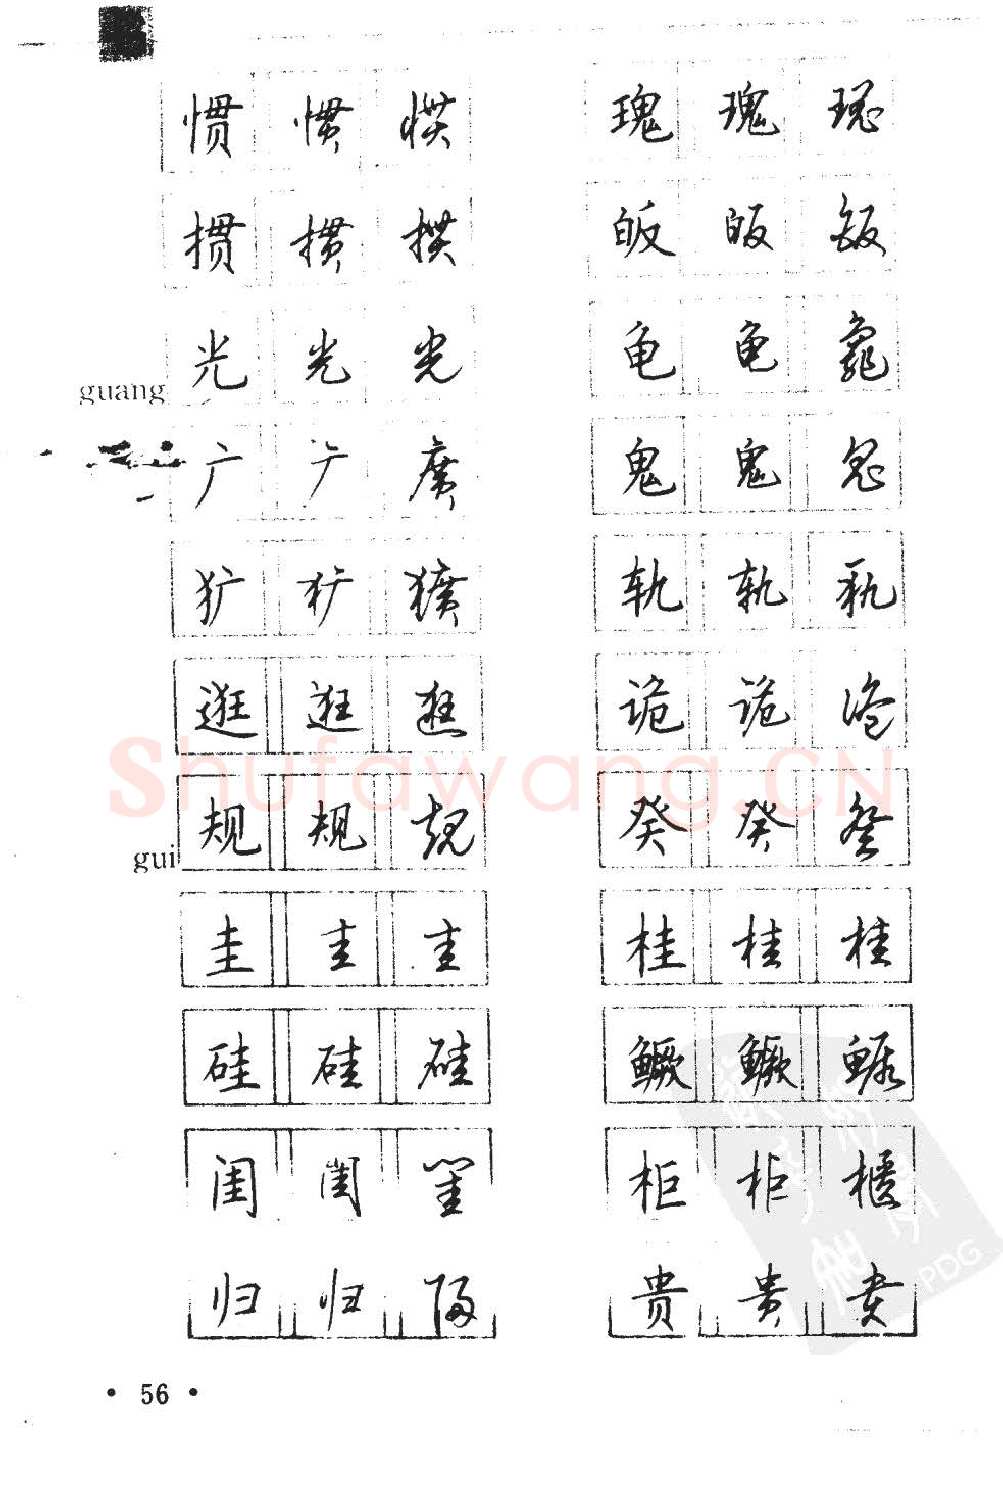 惯 惯 惯
掼 掼 掼
guang 光 光 光
广 广 廣
犷 犷 獷
逛 逛 逛
gui 规 规 规
圭 圭 圭
硅 硅 硅
闺 闺 闺
归 归 归
瑰 瑰 瑰
皈 皈 皈
龟 龟 龜
鬼 鬼 鬼
轨 轨 轨
诡 诡 诡
癸 癸 癸
桂 桂 桂
鳜 鳜 鳜
柜 柜 櫃
贵 贵 贵
Shufawang.CN
PDG
• 56 •